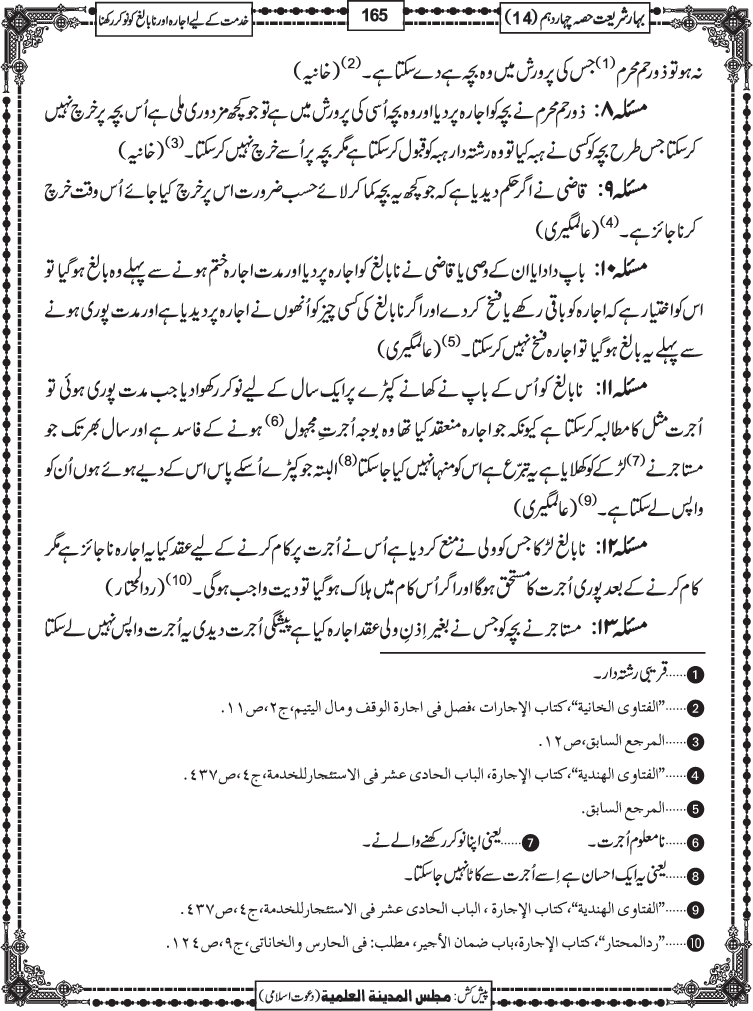 بہارِ شریعت حصہ چہاردہم (14)
165
خدمت کے لیے اجارہ اور نابالغ کو نوکر رکھنا
نہ ہو تو ذورحم محرم (1) جس کی پرورش میں وہ بچہ ہے دے سکتا ہے۔ (2) (خانیہ)
مسئلہ ۸: ذورحم محرم نے بچہ کو اجارہ پر دیا اور وہ بچہ اُسی کی پرورش میں ہے تو جو کچھ مزدوری ملی ہے اُس بچہ پر خرچ نہیں
کر سکتا جس طرح بچہ کو کسی نے ہبہ کیا تو وہ رشتہ دار ہبہ کو قبول کر سکتا ہے مگر بچہ پر اُسے خرچ نہیں کر سکتا۔ (3) (خانیہ)
مسئلہ ۹: قاضی نے اگر حکم دیدیا ہے کہ جو کچھ یہ بچہ کما کر لائے حسب ضرورت اس پر خرچ کیا جائے اُس وقت خرچ
کرنا جائز ہے۔ (4) (عالمگیری)
مسئلہ ۱۰: باپ دادا یا ان کے وصی یا قاضی نے نابالغ کو اجارہ پر دیا اور مدت اجارہ ختم ہونے سے پہلے وہ بالغ ہوگیا تو
اس کو اختیار ہے کہ اجارہ کو باقی رکھے یا فسخ کر دے اور اگر نابالغ کی کسی چیز کو اُنھوں نے اجارہ پر دیدیا ہے اور مدت پوری ہونے
سے پہلے یہ بالغ ہوگیا تو اجارہ فسخ نہیں کر سکتا۔ (5) (عالمگیری)
مسئلہ ۱۱: نابالغ کو اُس کے باپ نے کھانے کپڑے پر ایک سال کے لیے نوکر رکھوا دیا جب مدت پوری ہوئی تو
اُجرت مثل کا مطالبہ کر سکتا ہے کیونکہ جو اجارہ منعقد کیا تھا وہ بوجہ اُجرتِ مجہول (6) ہونے کے فاسد ہے اور سال بھر تک جو
مستاجر نے (7) لڑکے کو کھلایا ہے یہ تبرّع ہے اس کو منہا نہیں کیا جا سکتا (8) البتہ جو کپڑے اُسکے پاس اس کے دیے ہوئے ہوں اُن کو
واپس لے سکتا ہے۔ (9) (عالمگیری)
مسئلہ ۱۲: نابالغ لڑکا جس کو ولی نے منع کر دیا ہے اُس نے اُجرت پر کام کرنے کے لیے عقد کیا یہ اجارہ ناجائز ہے مگر
کام کرنے کے بعد پوری اُجرت کا مستحق ہوگا اور اگر اُس کام میں ہلاک ہوگیا تو دیت واجب ہوگی۔ (10) (ردالمحتار)
مسئلہ ۱۳: مستاجر نے بچہ کو جس نے بغیر اِذنِ ولی عقد اجارہ کیا ہے پیشگی اُجرت دیدی یہ اُجرت واپس نہیں لے سکتا
1 ......قریبی رشتہ دار۔
2 ......”الفتاوی الخانیۃ“، کتاب الإجارات، فصل فی اجارۃ الوقف ومال الیتیم، ج۲، ص۱۱.
3 ......المرجع السابق، ص۱۲.
4 ......”الفتاوی الھندیۃ“، کتاب الإجارۃ، الباب الحادی عشر فی الاستئجار للخدمۃ، ج٤، ص٤٣٧.
5 ......المرجع السابق.
6 ......نامعلوم اُجرت۔ 7 ......یعنی اپنا نوکر رکھنے والے نے۔
8 ......یعنی یہ ایک احسان ہے اِسے اُجرت سے کاٹا نہیں جا سکتا۔
9 ......”الفتاوی الھندیۃ“، کتاب الإجارۃ، الباب الحادی عشر فی الاستئجار للخدمۃ، ج٤، ص٤٣٧.
10 ......”ردالمحتار“، کتاب الإجارۃ، باب ضمان الأجیر، مطلب: فی الحارس والخاناتی، ج۹، ص۱۲٤.
پیش کش: مجلس المدينة العلمية (دعوت اسلامی)